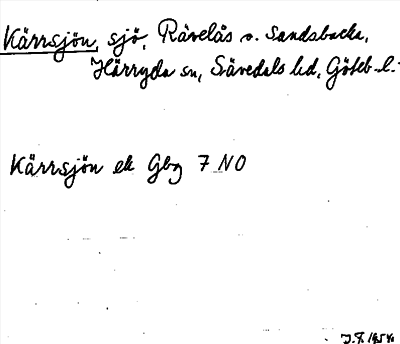 Kärrsjön, sjö, Rävelås o. Sandsbacka,
Härryda sn, Sävedals hd, Göteb. l.
Kärrsjön ek Gbg 7 NO